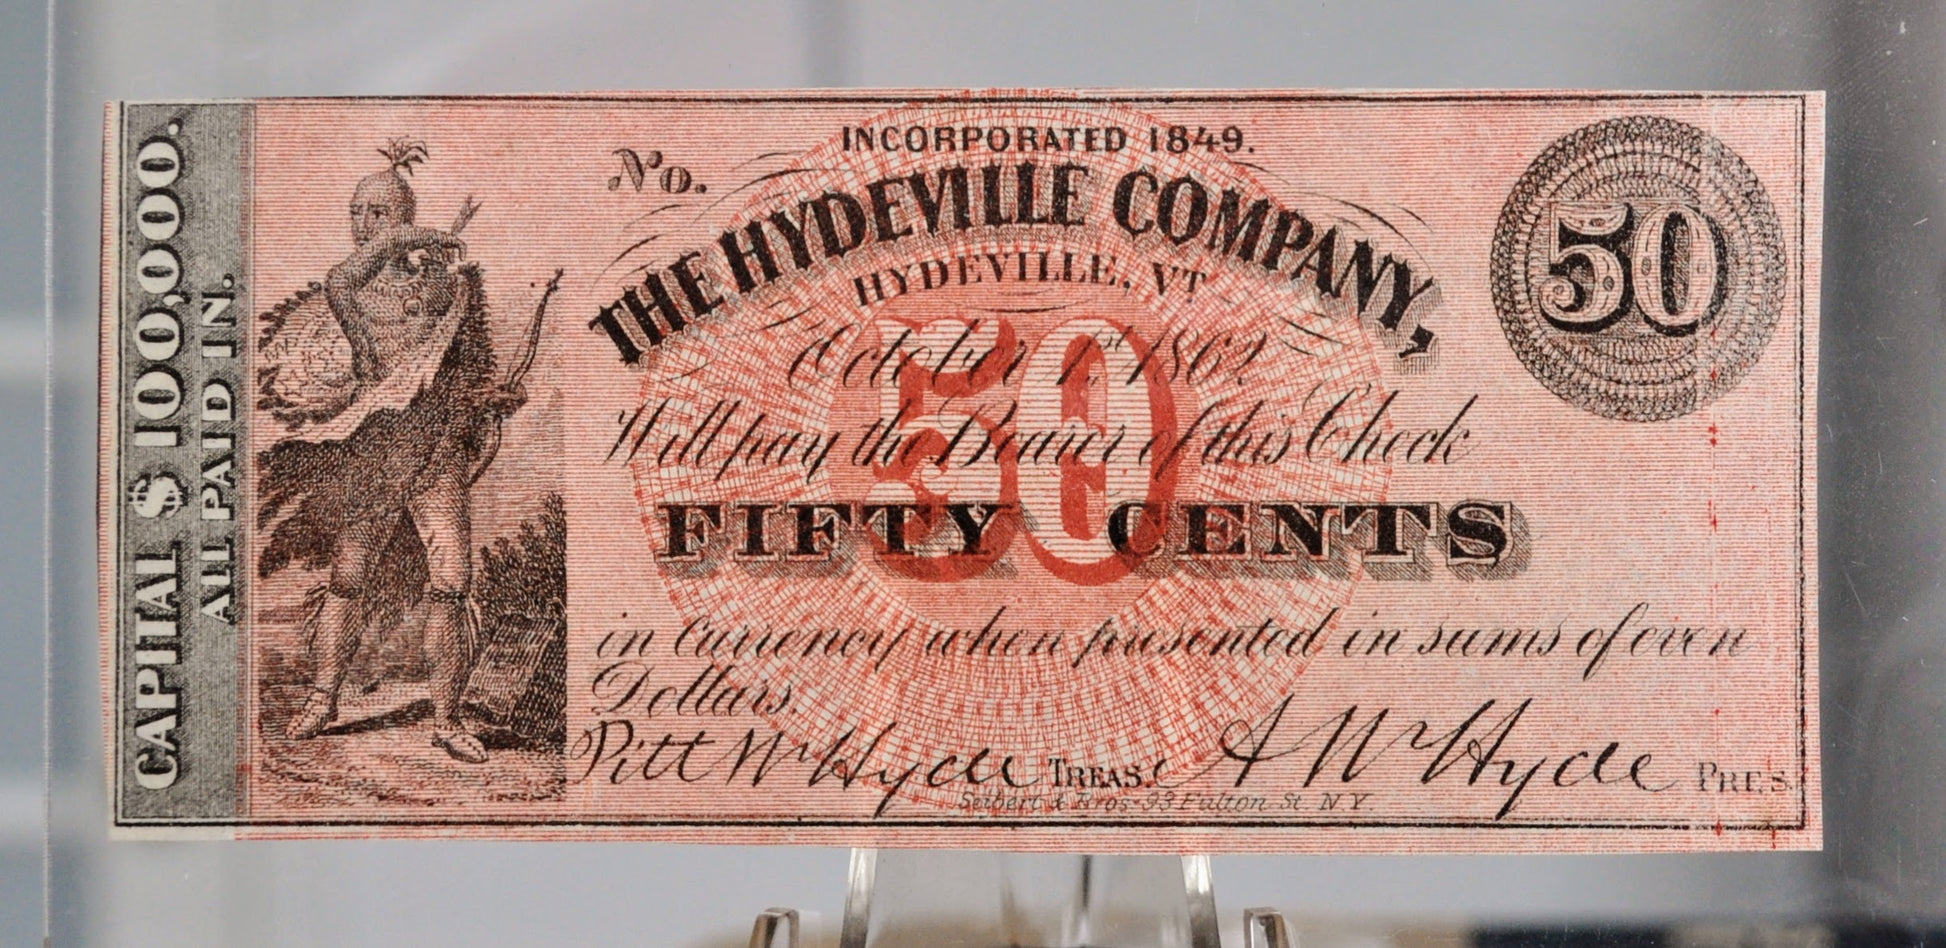 CAPITAL $100,000.
ALL PAID IN.
INCORPORATED 1849.
No.
THE HYDEVILLE COMPANY,
HYDEVILLE, VT
50
50
October 1st 1862.
Will pay the Bearer of this Check
FIFTY CENTS
in currency when presented in sums of even
Dollars.
Pitt W Hyde TREAS. A W Hyde PRES.
Seibert & Bros 93 Fulton St. N Y.